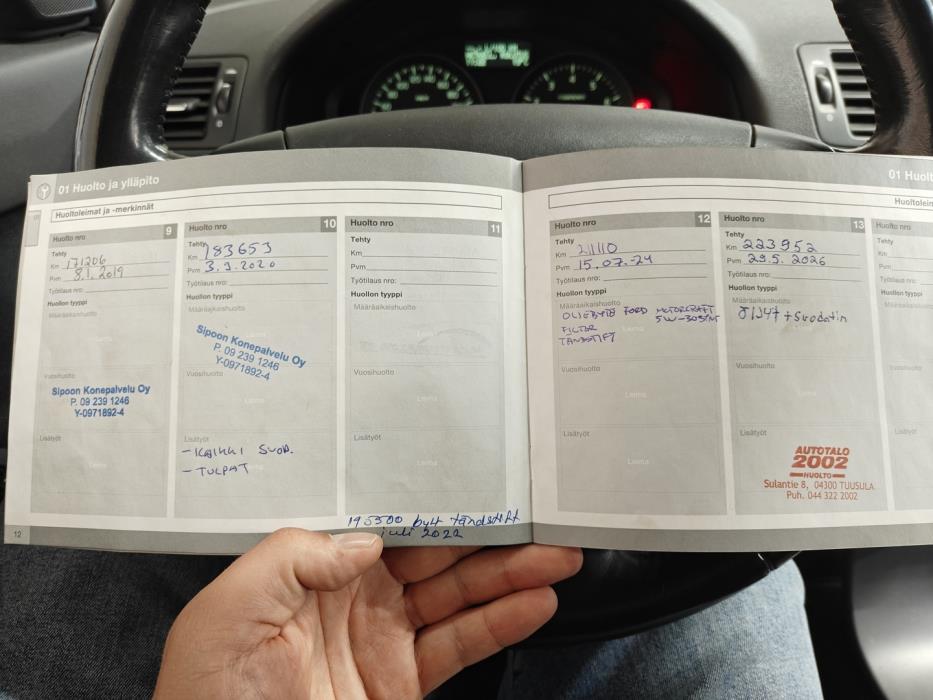 01 Huolto ja ylläpito
Huoltoleimat ja -merkinnät
Huolto nro 9
Tehty
Km 171206
Pvm 8.1.2019
Työtilaus nro:
Huollon tyyppi
Määräaikaishuolto
Vuosihuolto
Sipoon Konepalvelu Oy
P. 09 239 1246
Y-0971892-4
Lisätyöt
Leima
12
Huolto nro 10
Tehty
Km 183653
Pvm 3.9.2020
Työtilaus nro:
Huollon tyyppi
Määräaikaishuolto
Sipoon Konepalvelu Oy
P. 09 239 1246
Y-0971892-4
Vuosihuolto
Leima
Lisätyöt
- KAIKKI SUOD.
- TULPAT
Huolto nro 11
Tehty
Km
Pvm
Työtilaus nro:
Huollon tyyppi
Määräaikaishuolto
Vuosihuolto
Leima
Lisätyöt
Leima
195500 bytt tändstift
juli 2022
01 Huolt
Huoltoleim
Huolto nro 12
Tehty
Km 211110
Pvm 15.07.-24
Työtilaus nro:
Huollon tyyppi
Määräaikaishuolto
OLJEBYTE FORD MOTORCRAFT
5W-30
FILTER
TÄNDSTIFT
Vuosihuolto
Leima
Lisätyöt
Leima
Huolto nro 13
Tehty
Km 223952
Pvm 29.5.2026
Työtilaus nro:
Huollon tyyppi
Määräaikaishuolto
Öljyt + Suodatin
Vuosihuolto
Leima
Lisätyöt
AUTOTALO
2002
HUOLTO
Sulantie 8, 04300 TUUSULA
Puh. 044 322 2002
Huolto nro
Tehty
Km
Pvm
Työtilaus nro
Huollon tyyppi
Määräaikaish
Vuosihuolto
Lisätyöt